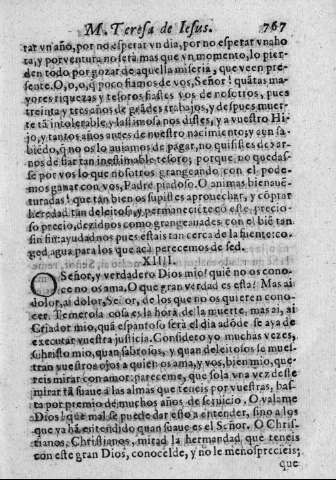 M. Teresa de Iesus. 767
rar vn año, por no esperar vn dia, por no esperar vna ho
ra, y por ventura no sera mas que vn momento, lo pier-
den todo por gozar de aquella miseria, que veen pre-
sente. O, o, o, q̃ poco fiamos de vos, Señor! quãtas ma-
yores riquezas y tesoros fiastes vos de nosotros, pues
treinta y tres años de grãdes trabajos, y despues muer-
te tã intolerable y lastimosa nos distes, y a vuestro Hi-
jo, y tantos años antes de nuestro nacimiento; y aun sa-
biẽdo, q̃ no os lo auiamos de pagar, no quisistes dexar-
nos de fiar tan inestimable tesoro; porque no quedas-
se por vos lo que nosotros grangeando con el pode-
mos ganar con vos, Padre piadoso. O animas bienauẽ-
turadas! que tan bien os supistes aprouechar, y cõprar
heredad tan deleitosa, y permaneciẽte cõ este precio-
so precio, dezidnos como grangeauades con el biẽ tan
sin fin: ayudadnos pues estais tan cerca de la fuente: co-
ged agua para los que acà perecemos de sed.
XIIII.
O Señor, y verdadero Dios mio! quiẽ no os cono-
ce no os ama. O que gran verdad es esta! Mas ai
dolor, ai dolor, Señor, de los que no os quieren cono-
cer. Temerosa cosa es la hora de la muerte, mas ai, ai
Criador mio, quã espantoso será el dia adõde se aya de
executar vuestra justicia. Considero yo muchas vezes,
Christo mio, quan sabrosos, y quan deleitosos se mues-
tran vuestros ojos a quien os ama, y vos, bien mio, que-
reis mirar con amor: pareceme, que sola vna vez deste
mirar tã suaue a las almas que teneis por vuestras, bas-
ta por premio de muchos años de seruicio. O valame
Dios! que mal se puede dar esto a entender, sino a los
que ya hã entendido quan suaue es el Señor. O Chris-
tianos, Christianos, mirad la hermandad que teneis
con este gran Dios, conocelde, y no le menosprecieis;
que